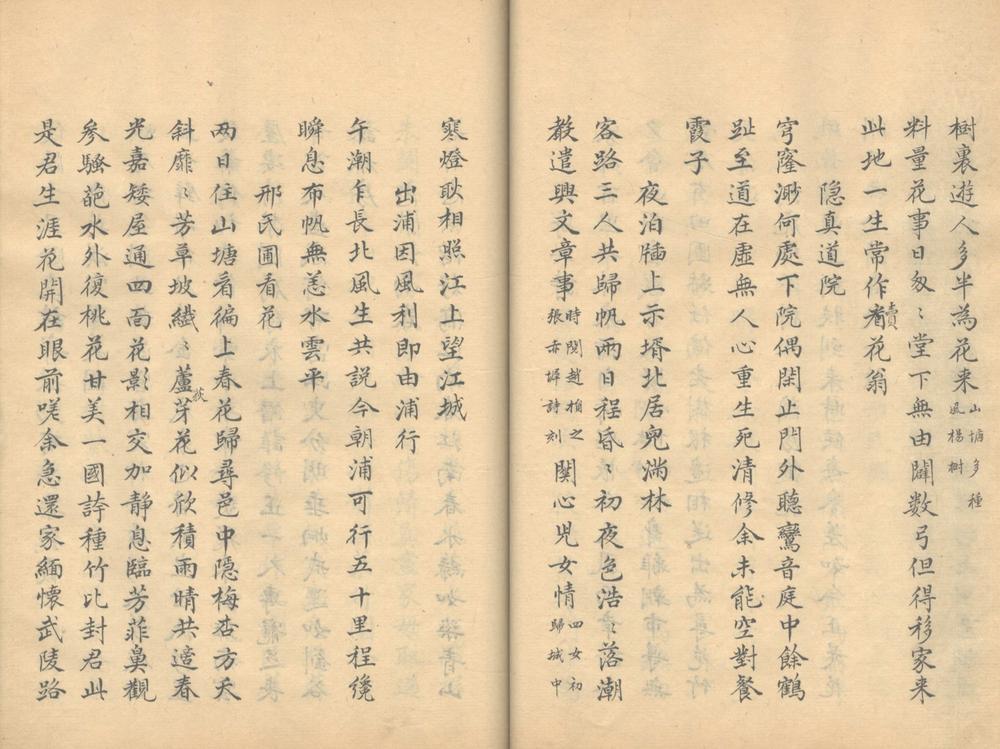 樹裏遊人多半為花来山塘多種風楊樹
料量花事日匆〻堂下無由闢数弓但得移家来
此地一生常作賣花翁
隐真道院
穹窿渺何處下院偶閑止門外聴鸞音庭中餘鶴
趾至道在虛無人心重生死清修余未能空對餐
霞子
夜泊牐上示壻北居兒湍林
客路三人共歸帆兩日程昏〻初夜色浩〻落潮
教遣興文章事時閲趙楨之張亦壻詩刻関心児女情四女初歸城中
寒燈耿相照江上望江城
出浦因風利即由浦行
午潮乍長北風生共説今朝浦可行五十里程纔
瞬息布帆無恙水雲平
邢氏圃看花
兩日住山塘看徧上春花歸尋邑中隠梅杏方夭
斜靡〻芳草坡纎〻蘆芽花似欲積雨晴共適春
光嘉矮屋通四面花影相交加静息臨芳菲臭觀
參騷葩水外復桃花甘美一國誇種竹比封君此
是君生涯花開在眼前嗟余急還家緬懷武陵路